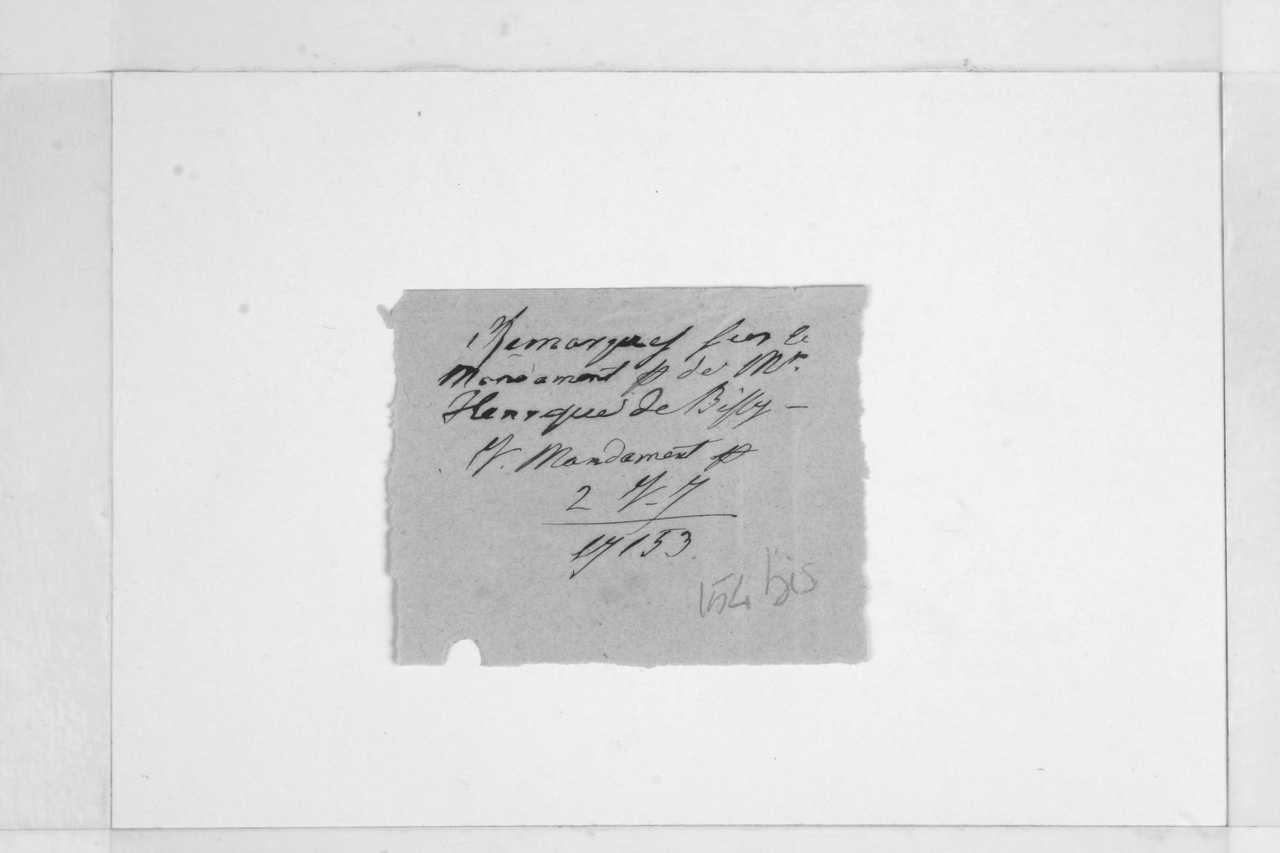 Remarques sur le
Mandament de Mr.
Henrique de Bissy –
V. Mandament
2 V-7
17153.
154 bis